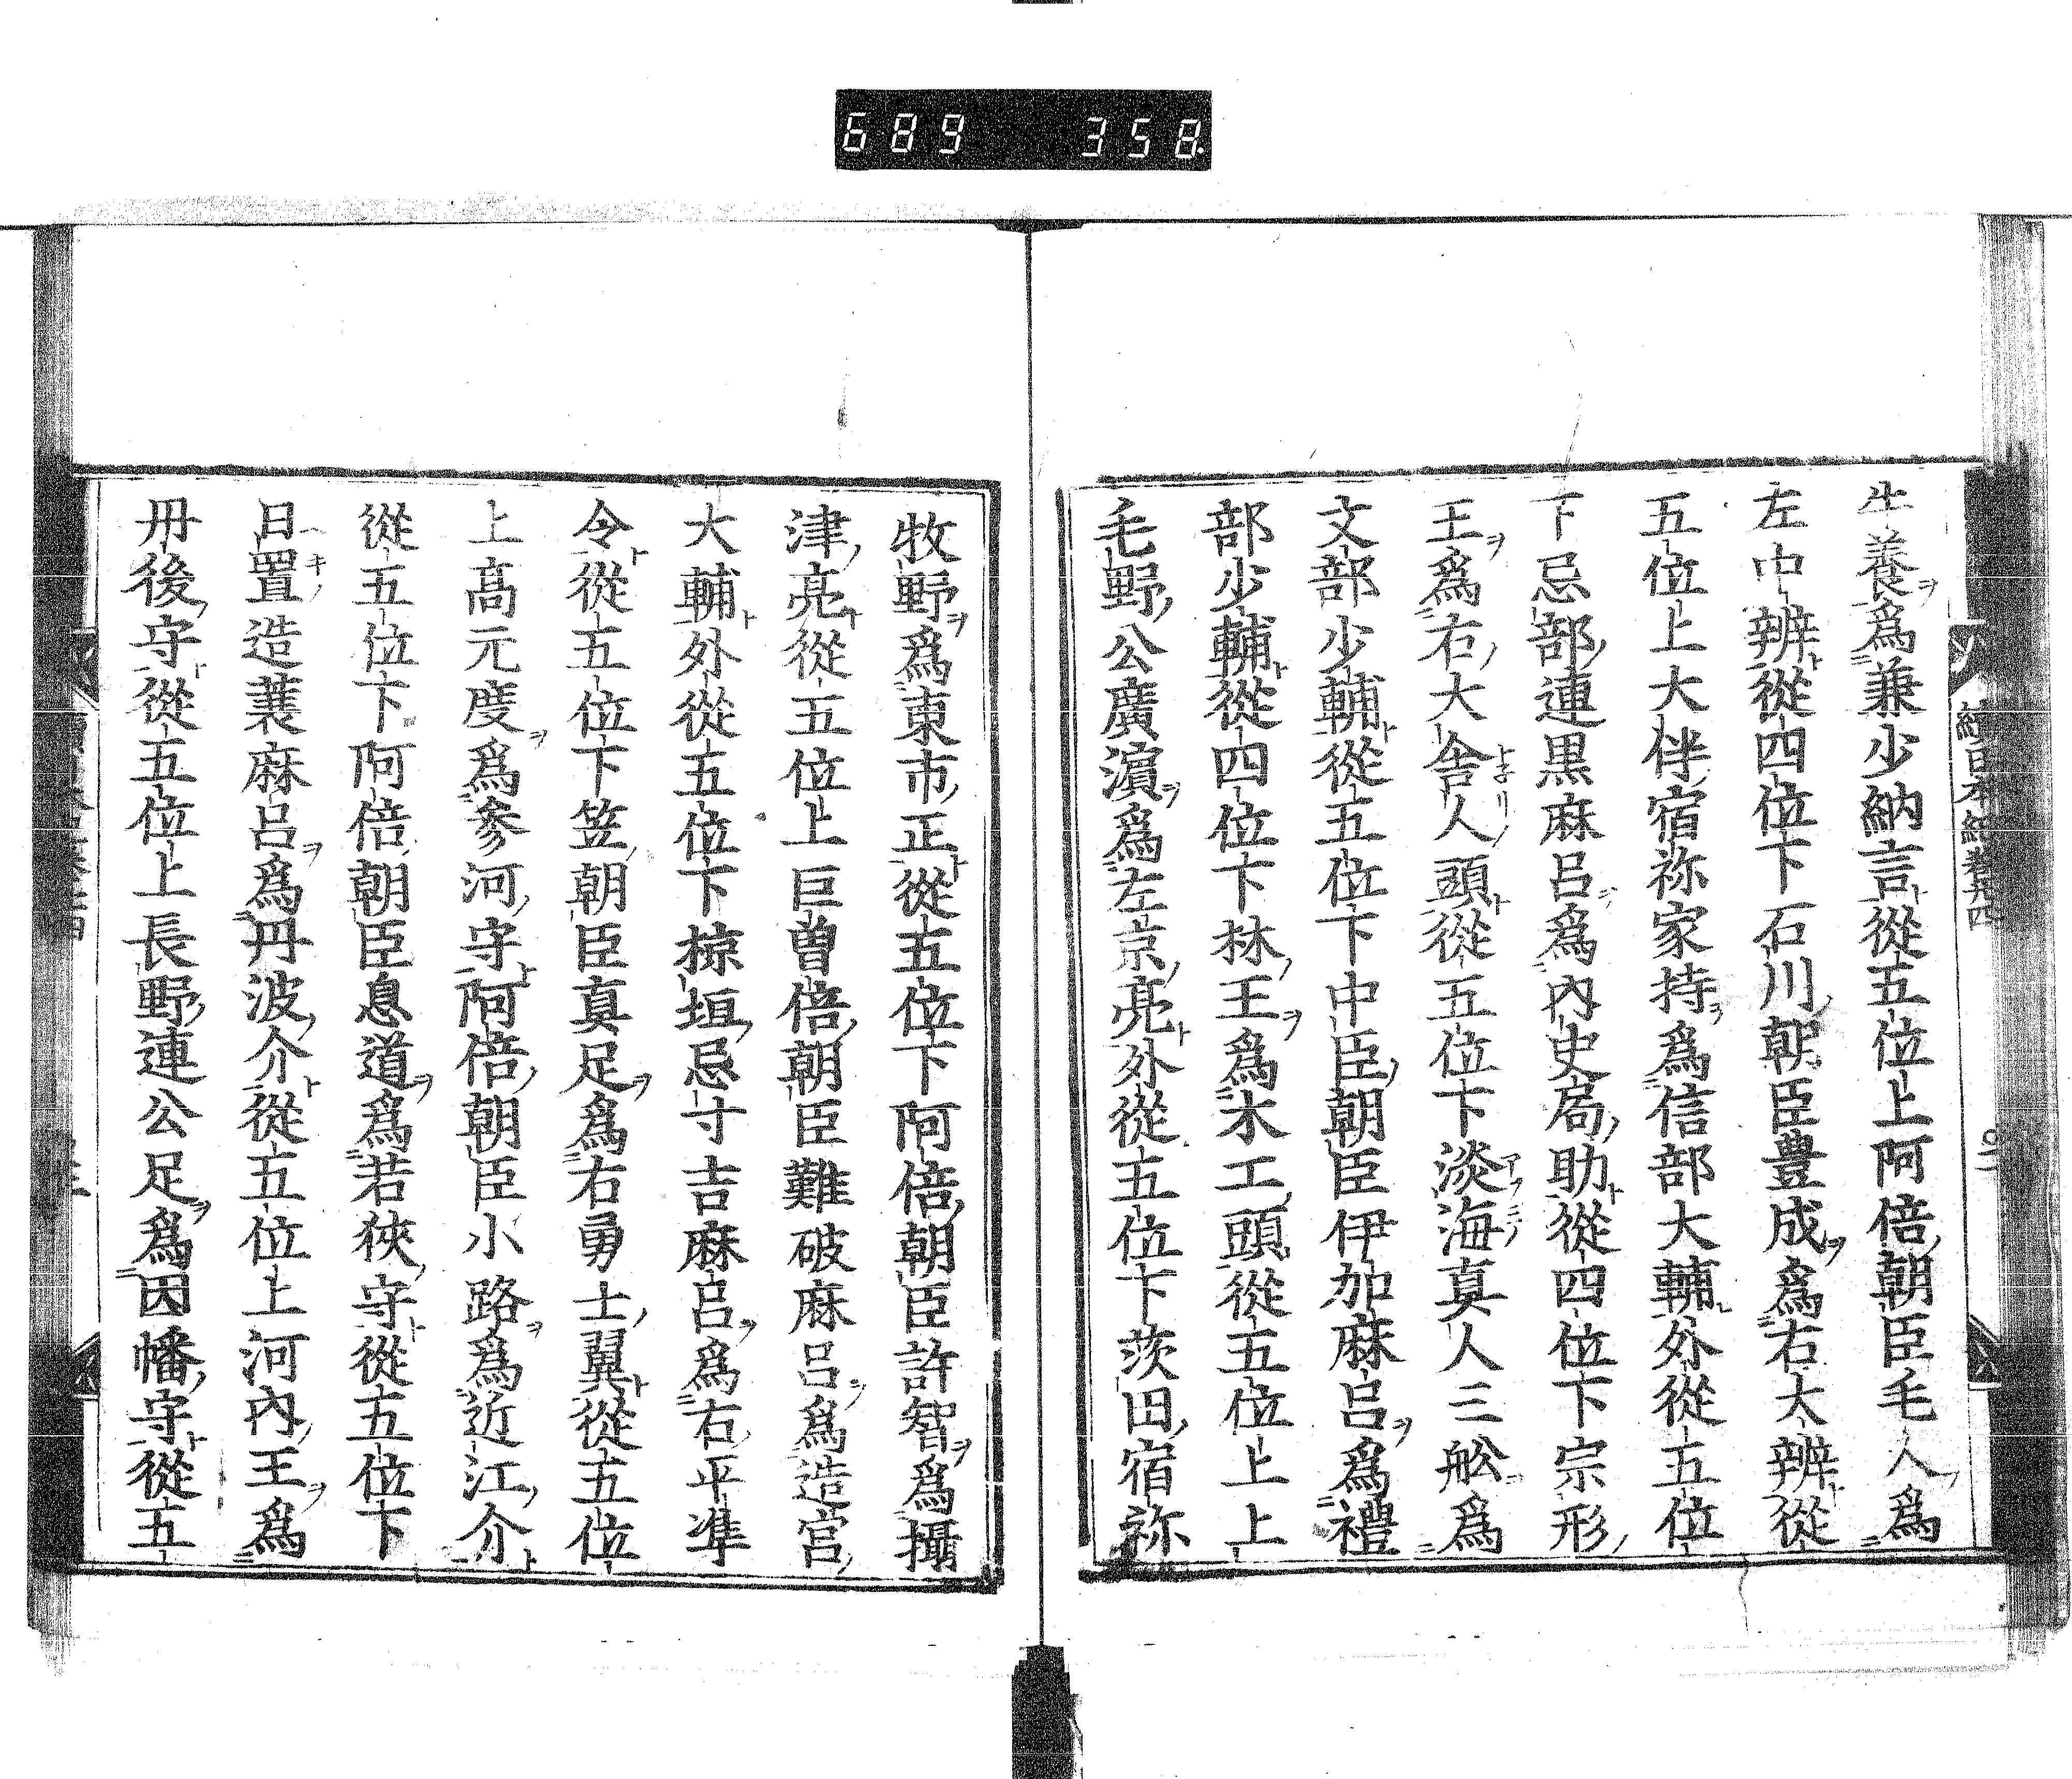 689 358
牛養爲兼少納言從五位上阿倍朝臣毛人爲
左中辨從四位下石川朝臣豊成爲右大辨從
五位上大伴宿祢家持爲信部大輔外從五位
下忌部連黒麻呂爲内史局助從四位下宗形
王爲右大舎人頭從五位下淡海真人三舩爲
文部少輔從五位下中臣朝臣伊加麻呂爲禮
部少輔從四位下林王爲木工頭從五位上上
毛野公廣濵爲左京亮外從五位下茨田宿祢
續日本紀巻廿四
牧野爲東市正從五位下阿倍朝臣許智爲攝
津亮從五位上巨曽倍朝臣難破麻呂爲造宮
大輔外從五位下椋垣忌寸吉麻呂爲右平凖
令從五位下笠朝臣真足爲右勇士翼從五位
上髙元度爲参河守阿倍朝臣小路爲近江介
從五位下阿倍朝臣息道爲若狹守從五位下
日置造蓑麻呂爲丹波介從五位上河内王爲
丹後守從五位上長野連公足爲因幡守從五